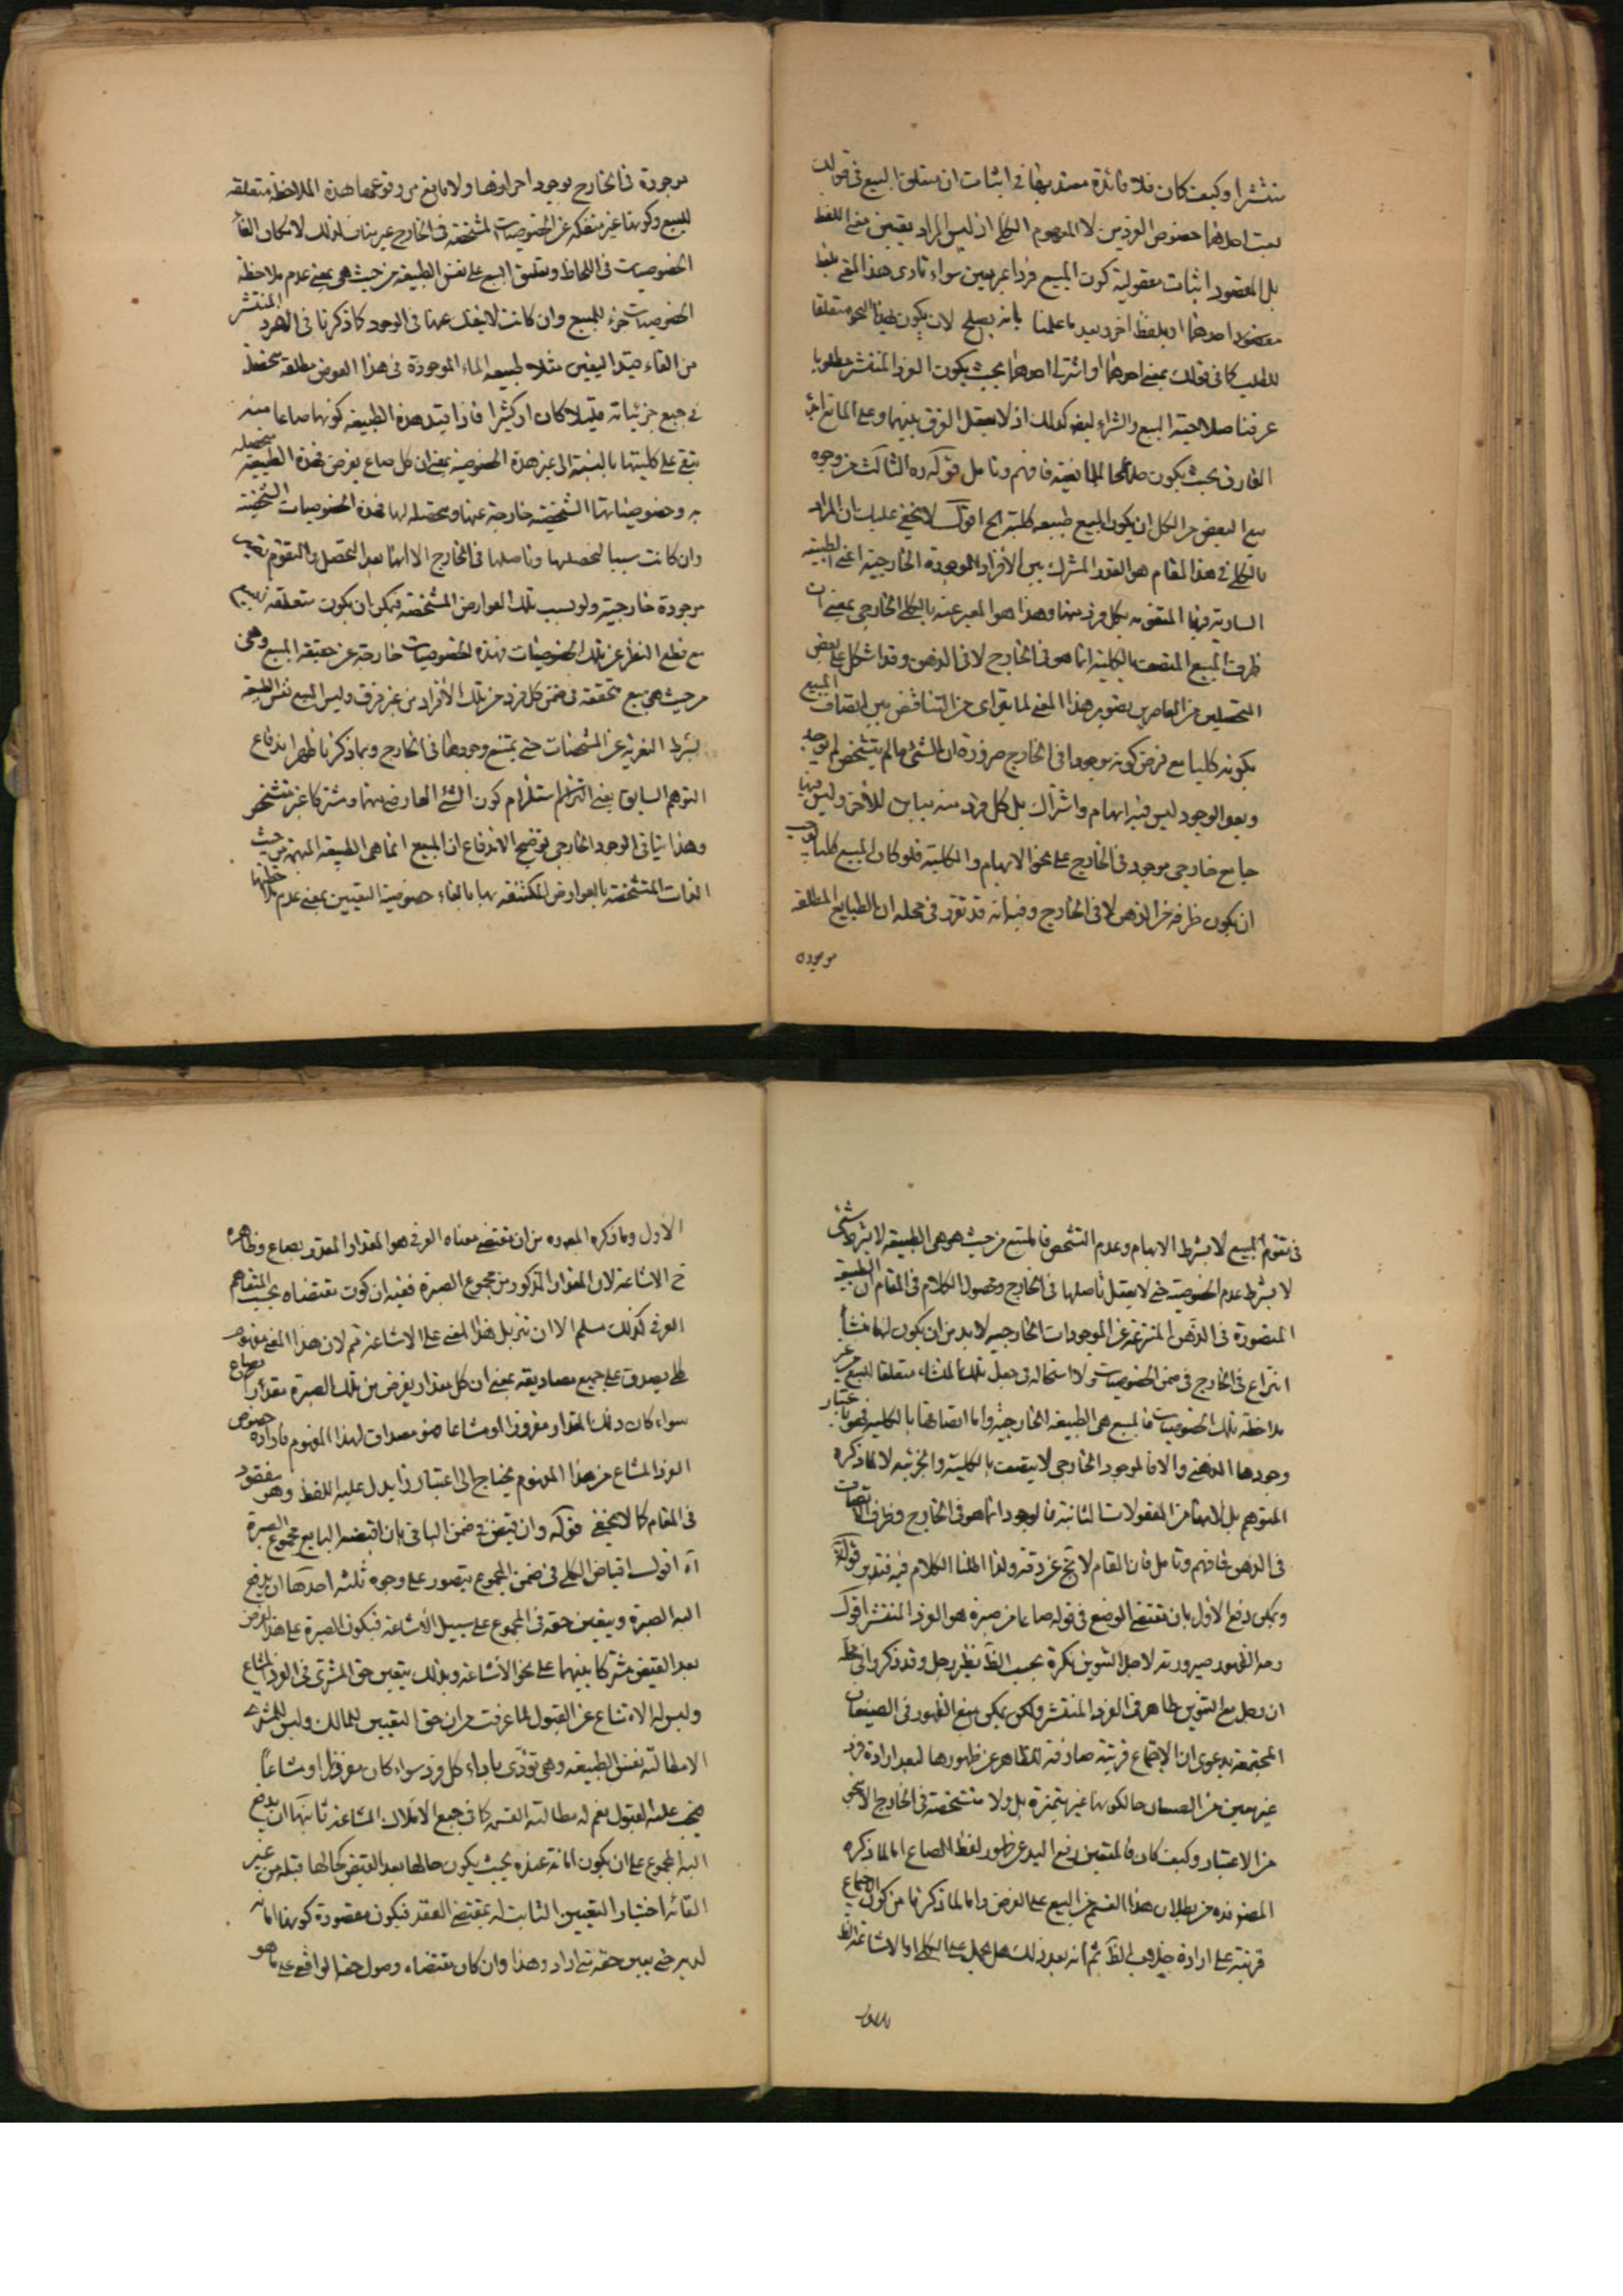 منتشرا وكيف كان فلا فائدة معتد بها في اثبات ان متعلق البيع في قولك
بعت احدهما خصوص الفردين لا المفهوم الكلي اذ ليس المراد تعيين معنى اللفظ
بل المقصود اثبات معقولية كون المبيع فردا غير معين سواء تادى هذا المعنى بلفظ
احدهما او بلفظ اخر وبعد ما علمنا بانه يصلح لان يكون هذا النحو متعلقا
للطلب كما في قولك بعني احدهما او اشتر لي احدهما بحيث يكون الفرد المنتشر مطلوبا
عرفنا صلاحية البيع والشراء ايضا كذلك اذ لا يعقل الفرق بينهما وعلى المانع اثبات
الفارق بحيث يكون صالحا للمانعية فافهم وتامل قوله ره الثالث من وجوه
بيع البعض من الكل ان يكون المبيع طبيعة كلية الخ اقول لا يخفى عليك ان المراد
بالكلي في هذا المقام هو القدر المشترك بين الأفراد الموجودة الخارجية اعني الطبيعة
السارية فيها المتقومة بكل فرد منها وهذا هو المعبر عنه بالكلي الخارجي بمعنى ان
ظرف المبيع المتصف بالكلية انما هو في الخارج لا في الذهن وقد اشكل على بعض
المحصلين من المعاصرين تصوير هذا المعنى لما يترائى من التناقض بين اتصاف المبيع
بكونه كليا مع فرض كونه موجودا في الخارج ضرورة ان الشئ ما لم يتشخص لم يوجد
وبعد الوجود ليس فيه ابهام واشتراك بل كل فرد منه مباين للأخر وليس فيها
جامع خارجي موجود في الخارج على نحو الابهام والكلية فلو كان المبيع كليا لوجب
ان يكون ظرفه هو الذهن لا في الخارج وفيه انه قد تقرر في محله ان الطبايع المطلقة
موجودة
موجودة في الخارج بوجود افرادها ولا مانع من وقوعها بهذه الملاحظة متعلقة
للبيع وكونها غير منفكة عن الخصوصيات المشخصة في الخارج غير مناف لذلك لامكان الغاء
الخصوصيات في اللحاظ وتعليق البيع على نفس الطبيعة من حيث هي بمعنى عدم ملاحظة
الخصوصيات جزء للمبيع وان كانت لا ينفك عنها في الوجود كما ذكرنا في الفرد المنتشر
من الغاء قيد التعيين مثلا طبيعة الماء الموجودة في هذا الحوض مطلقة متحصلة
في جميع جزئياته قليلا كان او كثيرا فاذا قيد هذه الطبيعة بكونها صاعا منه
تبقى على كليتها بالنسبة الى غير هذه الخصوصية بمعنى ان كل صاع يفرض فهذه الطبيعة متحصلة
به وخصوصياتها الشخصية خارجة عنها ومحصلة لها فهذه الخصوصيات الشخصية
وان كانت سببا لتحصلها وتاصلها في الخارج الا انها بعد التحصل والتقوم تصير
موجودة خارجية ولو بسبب تلك العوارض المشخصة فيمكن ان يكون متعلقة للبيع
مع قطع النظر عن تلك الخصوصيات فهذه الخصوصيات خارجة عن حقيقة المبيع وهي
من حيث هي مبيع متحققة في ضمن كل فرد من تلك الأفراد من غير فرق وليس المبيع نفس الطبيعة
بشرط التعرية عن المشخصات حتى يمتنع وجودها في الخارج وبما ذكرنا ظهر اندفاع
التوهم السابق اعني التزام استلزام كون الشئ العارض مبهما ومشتركا غير متشخص
وهذا ينافي الوجود الخارجي توضيح الاندفاع ان المبيع انما هي الطبيعة المبهمة من حيث
الذات المتشخصة بالعوارض المكتنفة بها بالغاء خصوصية التعيين بمعنى عدم ملاحظتها
في تقوم المبيع لا بشرط الابهام وعدم التشخص فالمبيع من حيث هو هي الطبيعة لا بشرط شئ
لا بشرط عدم الخصوصية حتى لا يعقل تاصلها في الخارج ومحصول الكلام في المقام ان الطبيعة
المتصورة في الذهن المنتزعة عن الموجودات الخارجية لا بد من ان يكون لها منشأ
انتزاع في الخارج في ضمن الخصوصيات ولا استحالة في جعل تلك المنشاء متعلقا للبيع من غير
ملاحظة تلك الخصوصيات فالمبيع هي الطبيعة الخارجية واما اتصافها بالكلية فهو باعتبار
وجودها الذهني والا فالموجود الخارجي لا يتصف بالكلية والجزئية لا لما ذكره
المتوهم بل لانهما من المعقولات الثانية فالوجود انما هو في الخارج وظرف الاتصاف
في الذهن فافهم وتامل فان المقام لا يخ عن دقة ولذا اطلنا الكلام فيه فتدبر قوله
ويمكن دفع الأول بان مقتضى الوضع في قوله صاعا من صبرة هو الفرد المنتشر اقول
وجه الظهور صيرورته لاجل التنوين نكرة بحسب الظ نظير رجل وقد ذكروا في محله
ان رجل مع التنوين ظاهر في الفرد المنتشر ولكن يمكن منع الظهور في الصيعان
المجتمعة بدعوى ان الاجتماع قرينة صارفة للظاهر عن ظهورها لبعد ارادة فرد
غير معين من الصيعان حالكونها غير متميزة بل ولا متشخصة في الخارج الا بنحو
من الاعتبار وكيف كان فالمتعين رفع اليد عن ظهور لفظ الصاع اما لما ذكره
المصنف ره من بطلان هذا القسم من البيع على الفرض واما لما ذكرنا من كون الاجتماع
قرينة على ارادة خلاف الظ ثم انه بعد ذلك هل يحمل على الكلي او الاشاعة الظ
الأول
الأول وما ذكره المص ره من ان مقتضى معناه العرفي هو المقدار المقدر بصاع وظاهره
ح الاشاعة لان المقدار المذكور من مجموع الصبرة ففيه ان كون مقتضاه بحسب المتفاهم
العرفي كذلك مسلم الا ان تنزيل هذا المعنى على الاشاعة ثم لان هذا المعنى مفهوم
كلي يصدق على جميع مصاديقه بمعنى ان كل مقدار يفرض من تلك الصبرة مقدار بصاع
سواء كان ذلك المقدار مفروزا او مشاعا فهو مصداق لهذا المفهوم فارادة خصوص
الفرد المشاع من هذا المفهوم يحتاج الى اعتبار زايد لم يدل عليه اللفظ وهو مفقود
في المقام كما لا يخفى قوله وان يتعين في ضمن الباقي بان اقبضه البايع مجموع الصبرة
آه اقول اقباض الكلي في ضمن المجموع يتصور على وجوه ثلثه احدها ان يدفع
اليه الصبرة ويتعين حقه في المجموع على سبيل الأشاعة فيكون الصبرة على هذا الفرض
بعد القبض مشتركا بينهما على نحو الأشاعة وبذلك يتعين حق المشتري في الفرد المشاع
وليس له الامتناع عن القبول لما عرفت من ان حق التعيين للمالك وليس للمشتري
الا مطالبة نفس الطبيعة وهي تؤدى باداء كل فرد سواء كان مفروزا او مشاعا
فيجب عليه القبول نعم له مطالبة القسمة كما في جميع الاملاك المشاعة ثانيها ان يدفع
اليه المجموع على ان يكون امانة عنده بحيث يكون حالها بعد القبض كحالها قبله من غير
القائه اختيار التعيين الثابت له بمقتضى العقد فيكون مقصوده كونها امانة
لديه حتى يعين حقه متى اراد وهذا وان كان مقتضاه وصول حقه الواقعي على ما هو